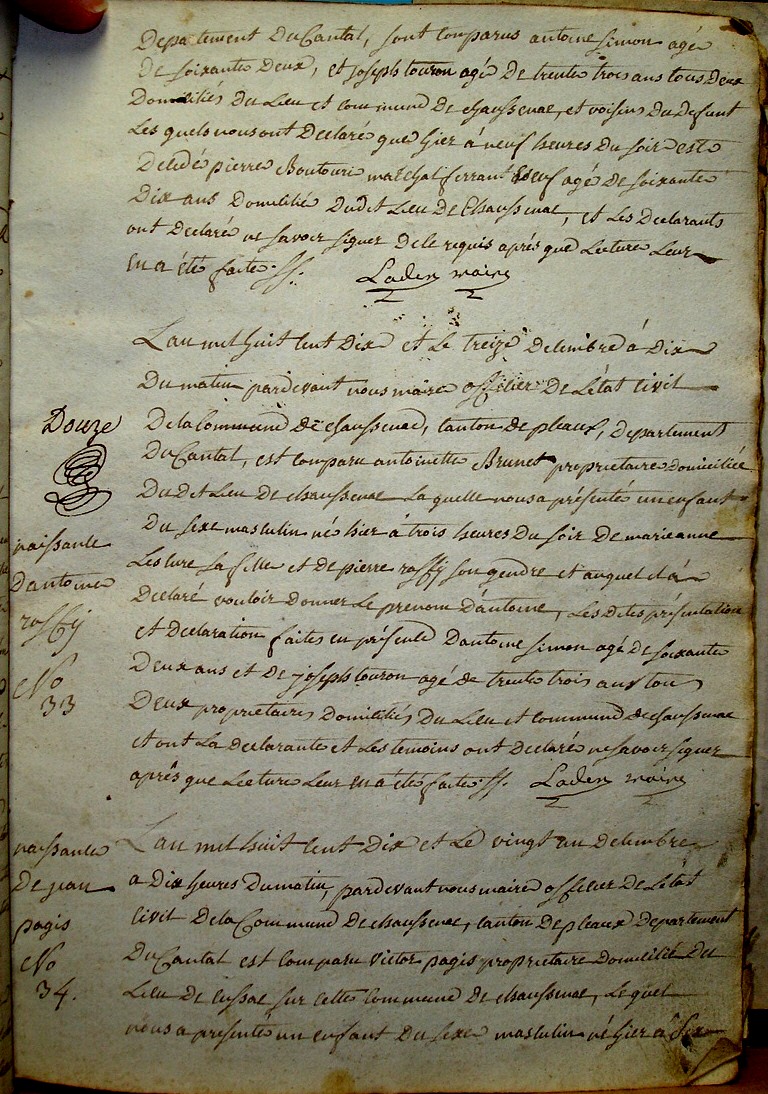 Departement du Cantal, sont comparus antoine simon agé
de soixante deux, et joseph touron agé de trente trois ans tous deux
domiciliés du Lieu et commune de chaussenac, et voisins du defunt
Les quels nous ont declaré que hier à neuf heures du soir est
decedé pierre Boutouri marechal ferrant veuf agé de soixante
dix ans domicilié dudit Lieu de Chaussenac, et Les declarants
ont declaré ne savoir signer de ce requis après que Lecture Leur
en a été faite ff. Laden maire
L'an mil huit cent dix et Le treize decembre à dix
du matin pardevant nous maire officier de L'état civil
Douze
de la Commune de chaussenac, canton de pleaux, departement
du Cantal, est comparu antoinette Brunet proprietaire domiciliée
du dit Lieu de chaussenac La quelle nous a présenté un enfant
du sexe masculin né hier à trois heures du soir de marieanne
naissance
d'antoine
raffy
No
33
Lescure sa fille et de pierre raffy son gendre et auquel il a
declaré vouloir donner Le prenom d'antoine, Les dites présentation
et declaration faites en présence d'antoine simon agé de soixante
deux ans et de joseph touron agé de trente trois ans tous
deux proprietaires domiciliés du Lieu et commune de chaussenac
et ont La declarante et Les temoins ont declaré ne savoir signer
après que Lecture Leur en a été faite ff. Laden maire
naissance
de jean
pagis
No
34.
L'an mil huit cent dix et Le vingt un decembre
a dix heures du matin, pardevant nous maire officier de L'état
civil de la Commune de chaussenac, canton de pleaux departement
du Cantal est comparu victor pagis proprietaire domicilié du
Lieu de cussac sur cette commune de chaussenac, Lequel
nous a presenté un enfant du sexe masculin né hier à six